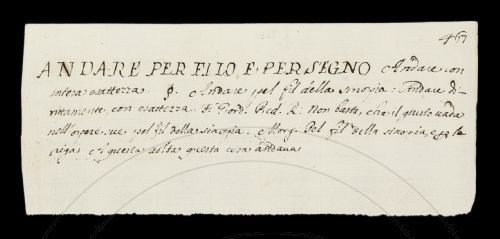 467
ANDARE PER FILO, E PER SEGNO Andare con
intera esattezza. §. Andare pel fil della sinopia. Andare di-
rittamente, con esattezza. F. Giord. Pred. R. Non basta, che il giusto vada
nell'opere sue pel fil della sinopia. Morg. Pel fil della sinopia, e per la
riga: Di questa volta questa cosa andava